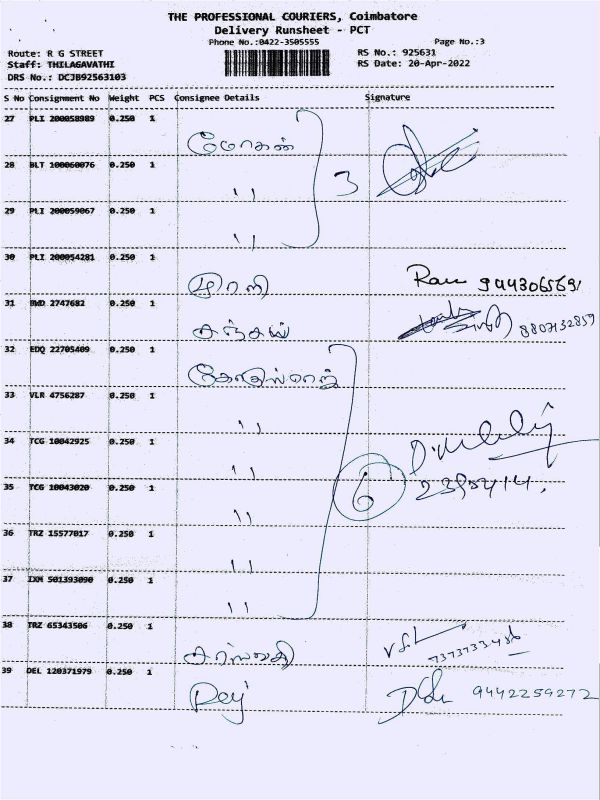 THE PROFESSIONAL COURIERS, Coimbatore
Delivery Runsheet - PCT
Phone No.:0422-3505555
Page No.:3
Route: R G STREET
RS No.: 925631
Staff: THILAGAVATHI
RS Date: 20-Apr-2022
DRS No.: DCJB92563103
S No Consignment No Weight PCS Consignee Details Signature
27 PLI 200058989 0.250 1
மோகன்
28 BLT 100060076 0.250 1
3
"
29 PLI 200059067 0.250 1
"
30 PLI 200054281 0.250 1
முரளி
Ram 9443065691
31 BWD 2747682 0.250 1
சஞ்சய்
8807132859
32 EDQ 22705409 0.250 1
33 VLR 4756287 0.250 1
"
34 TCG 10042925 0.250 1
"
35 TCG 10043020 0.250 1
6
"
36 TRZ 15577017 0.250 1
"
37 IXM 501393090 0.250 1
"
38 TRZ 65343506 0.250 1
சரஸ்வதி
39 DEL 120371979 0.250 1
9442259272